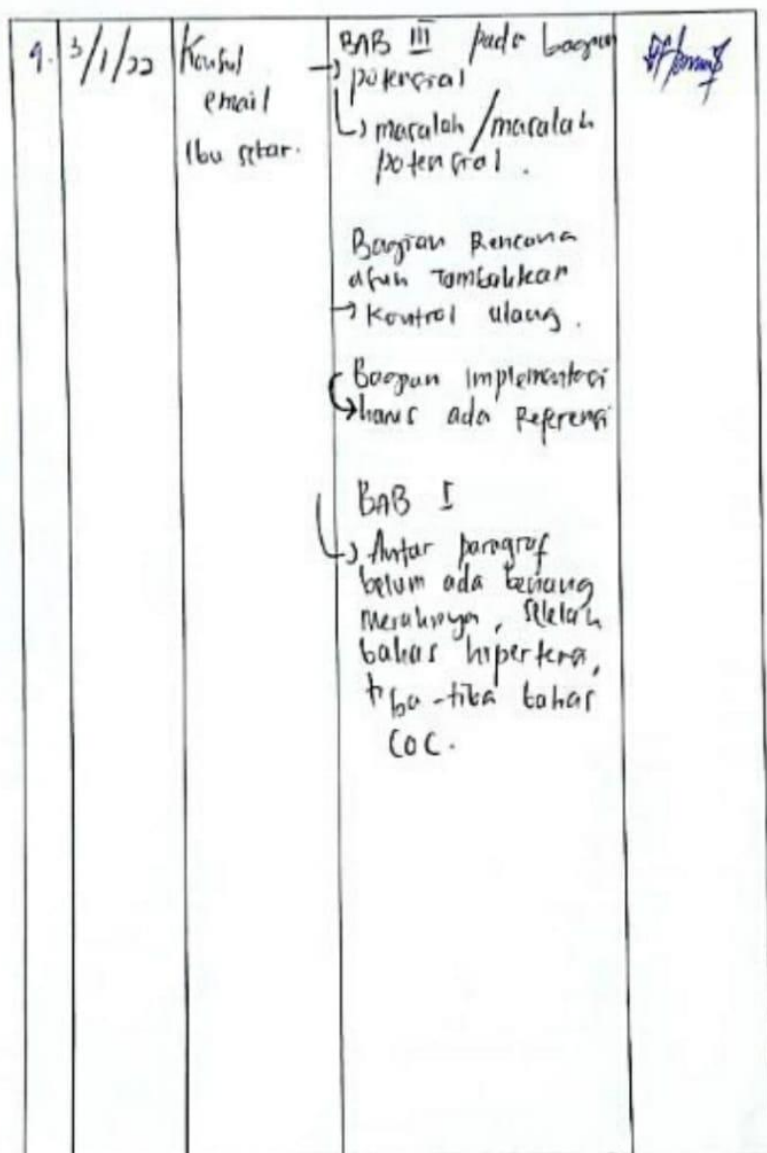 9.
3/1/22
Konsul
email
Ibu setar.
BAB III pada bagian
→ potensial
↳ masalah / masalah
potensial.
Bagian Rencana
asuh Tambahkan
→ Kontrol ulang.
Bagian implementasi
→ harus ada Referensi
BAB I
↳ Antar paragraf
belum ada benang
merahnya, setelah
bahas hipertensi,
tiba-tiba bahas
COC.